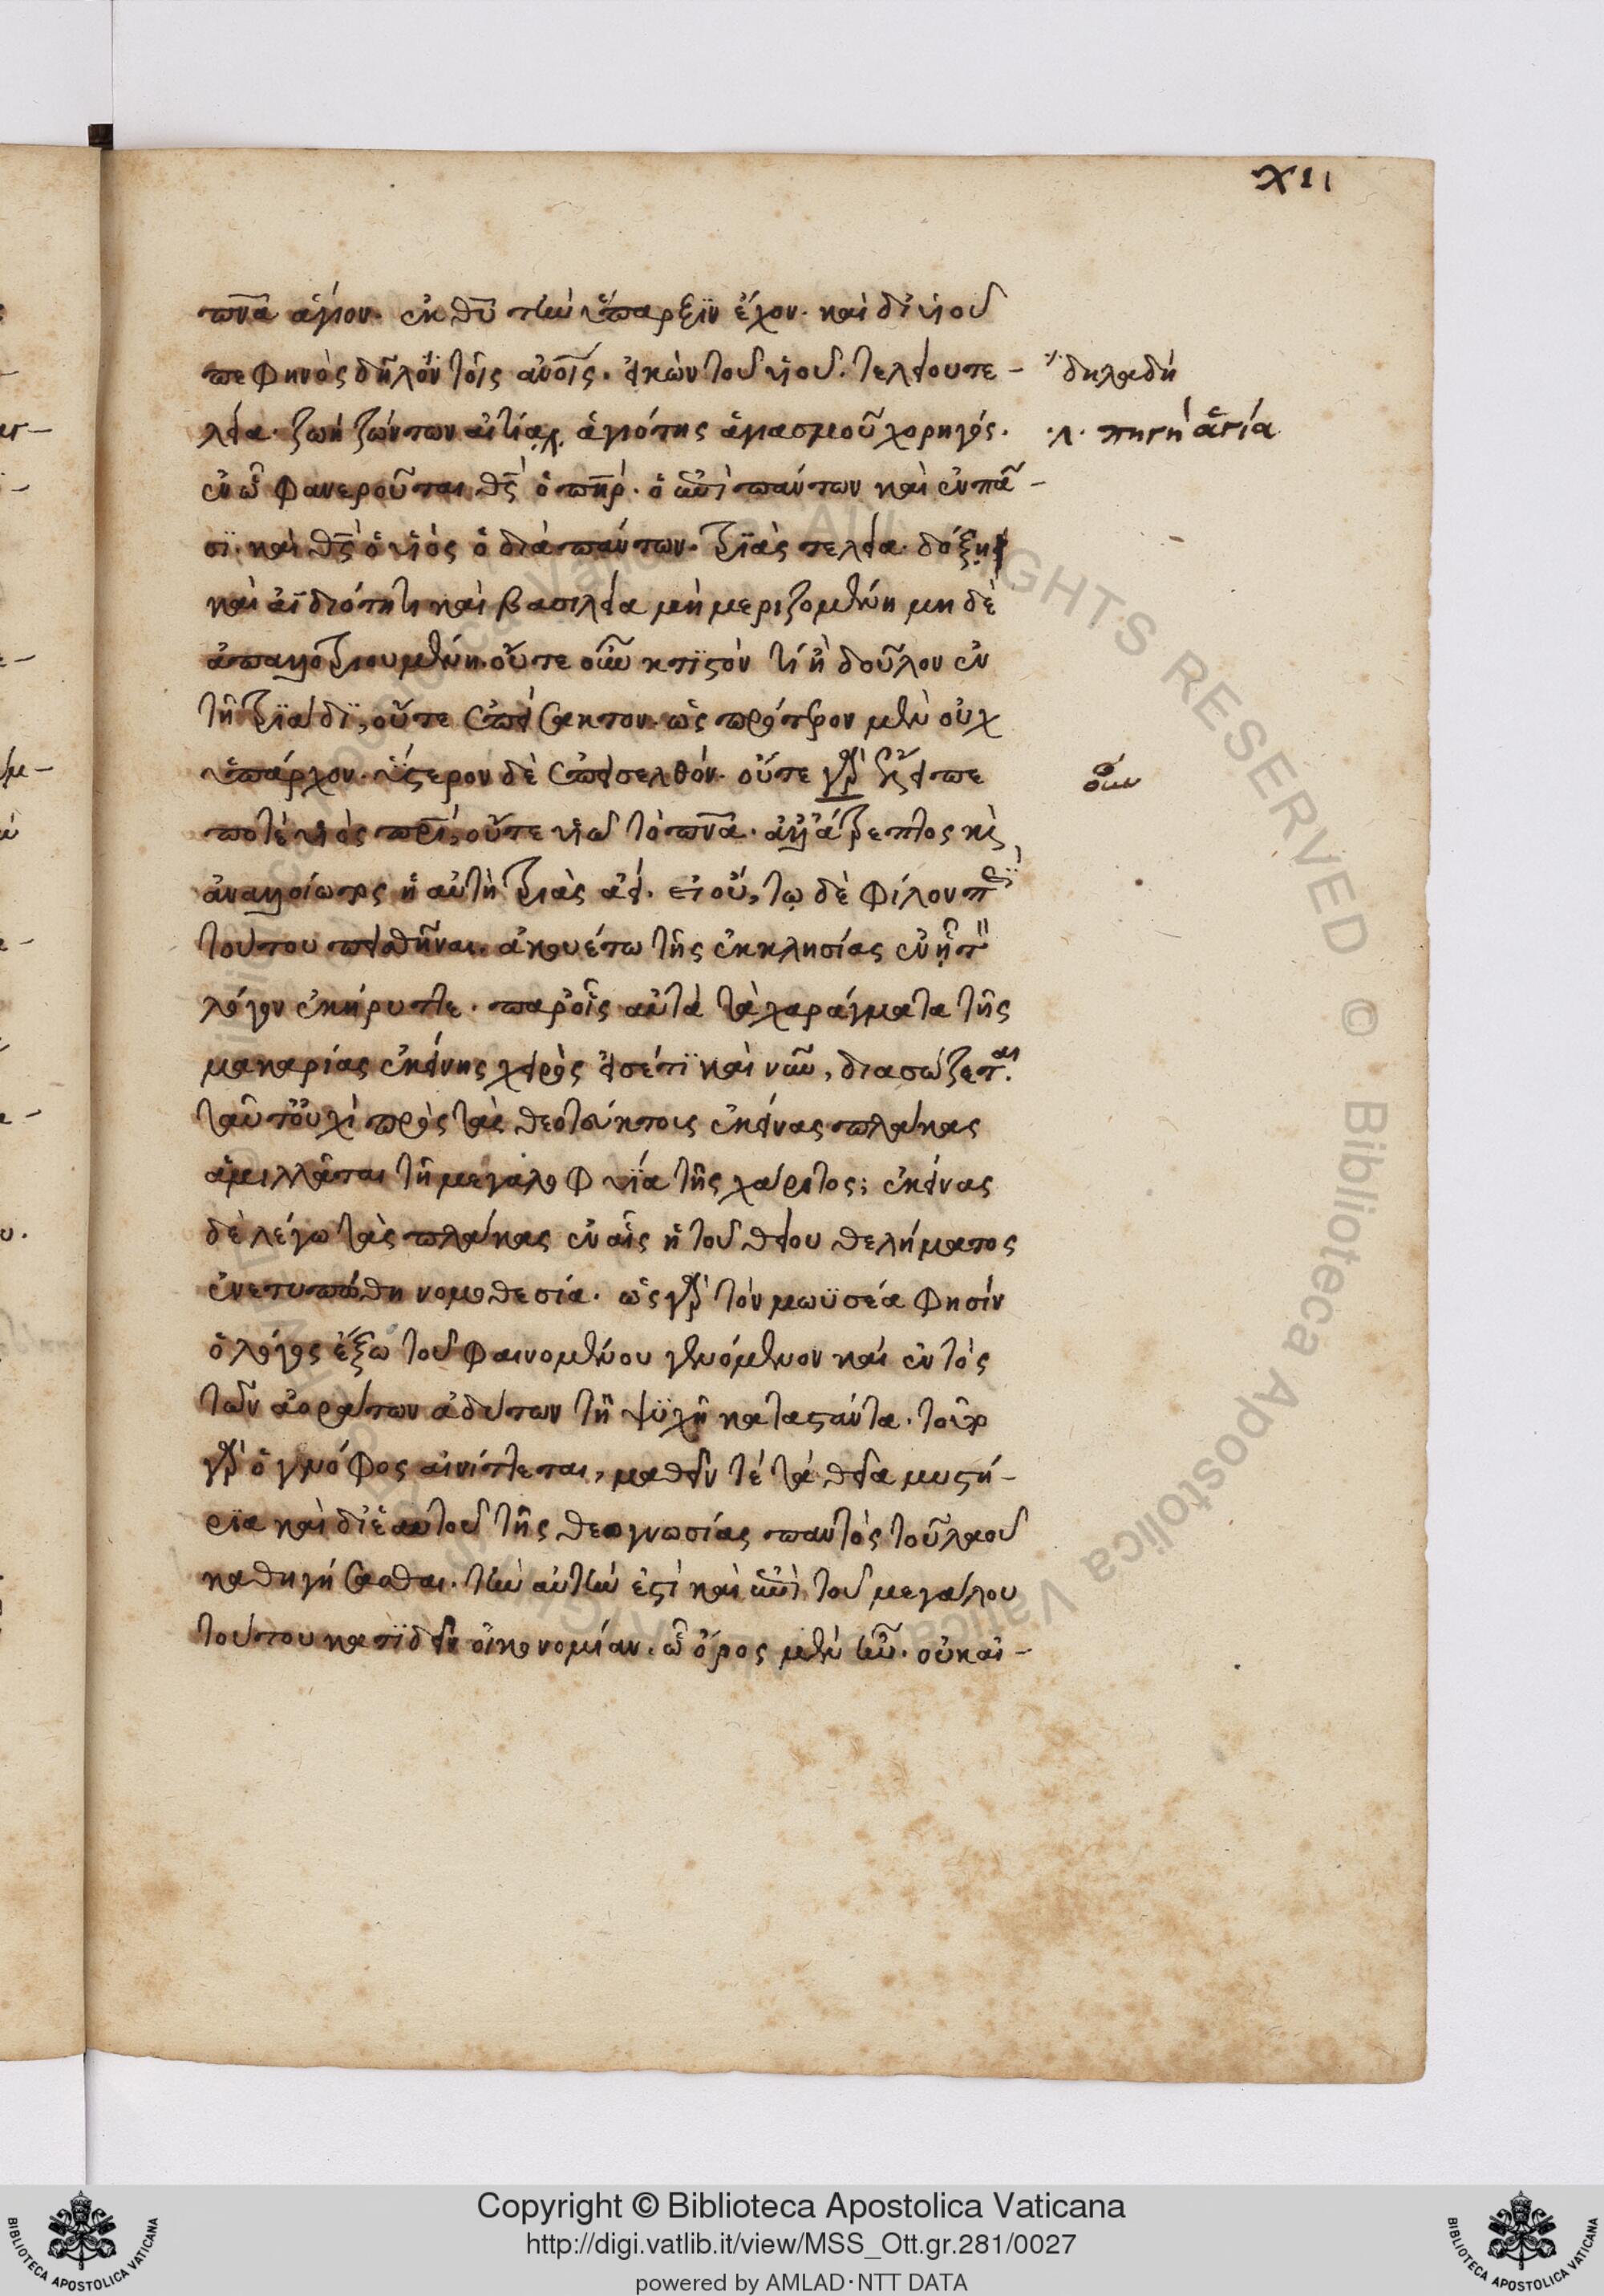 XII
πνα ἅγιον. ἐκ θυ τὴν ὕπαρξιν ἔχον. καὶ δι' υἱοῦ
πεφηνὸς δηλον τοῖς ανοις. εἰκὼν τοῦ υἱοῦ. τελείου τε-
λεία. ζωὴ ζώντων αἰτία. ἁγιότης ἁγιασμοῦ χορηγός.
ἐν ὧ φανεροῦται θς ὁ πηρ. ὁ ἐπὶ πάντων καὶ ἐν πᾶ-
σι. καὶ θς ὁ υἱὸς ὁ διὰ πάντων. τριὰς τελεία. δόξῃ
καὶ ἀϊδιότητι καὶ βασιλεία μὴ μεριζομένη μηδὲ
ἀπαλλοτριουμένη. οὔτε οὖν κτιστόν τί ἢ δοῦλον ἐν
τῇ τριάδι, οὔτε ἐπείσακτον. ὡς πρότερον μὲν οὐχ
ὑπάρχον. ὕστερον δὲ ἐπεισελθόν. οὔτε γὰρ ἐξέλειπε
ποτὲ υἱὸς πρι, οὔτε υἱῶ τὸ πνα. ἀλλ' ἄτρεπτος κὶ
ἀναλλοίωτος ἡ αὐτὴ τριὰς ἀεί. εἰ οὖ, τω δὲ φίλον π
τούτου πεισθῆναι. ἀκουέτω τῆς ἐκκλησίας ἐν ἧ τ
λόγον ἐκήρυττε. παρ' οἷς αὐτὰ τὰ χαράγματα τῆς
μακαρίας ἐκείνης χειρὸς εἰσέτι καὶ νῦν, διασώζεται.
ταῦτ' οὐχὶ πρὸς τὰς θεοτεύκτοις ἐκείνας πλάκας
ἁμιλλᾶται τῇ μεγαλοφυΐα τῆς χάριτος; ἐκείνας
δὲ λέγω τὰς πλάκας ἐν αἷς ἡ τοῦ θείου θελήματος
ἐνετυπώθη νομοθεσία. ὡς γὰρ τὸν μωϋσέα φησίν
ὁ λόγος ἔξω τοῦ φαινομένου γενόμενον καὶ ἐντὸς
τῶν ἀοράτων ἀδύτων τῇ ψυχῇ καταστάντα. τοῦτο
γὰρ ὁ γνόφος αἰνίττεται, μαθεῖν τέ τὰ θεῖα μυστή-
ρια καὶ δι' ἑαυτοῦ τῆς θεογνωσίας παντὸς τοῦ λαοῦ
καθηγήσασθαι. τὴν αὐτήν ἐστὶ καὶ ἐπὶ τοῦ μεγάλου
τούτου κατιδεῖν οἰκονομίαν. ὧ ὄρος μὲν ἦν. οὐκ αἰ-
δηλαδή
.λ. πηγὴ ἁγία
οὖν
Copyright © Biblioteca Apostolica Vaticana
http://digi.vatlib.it/view/MSS_Ott.gr.281/0027
powered by AMLAD·NTT DATA